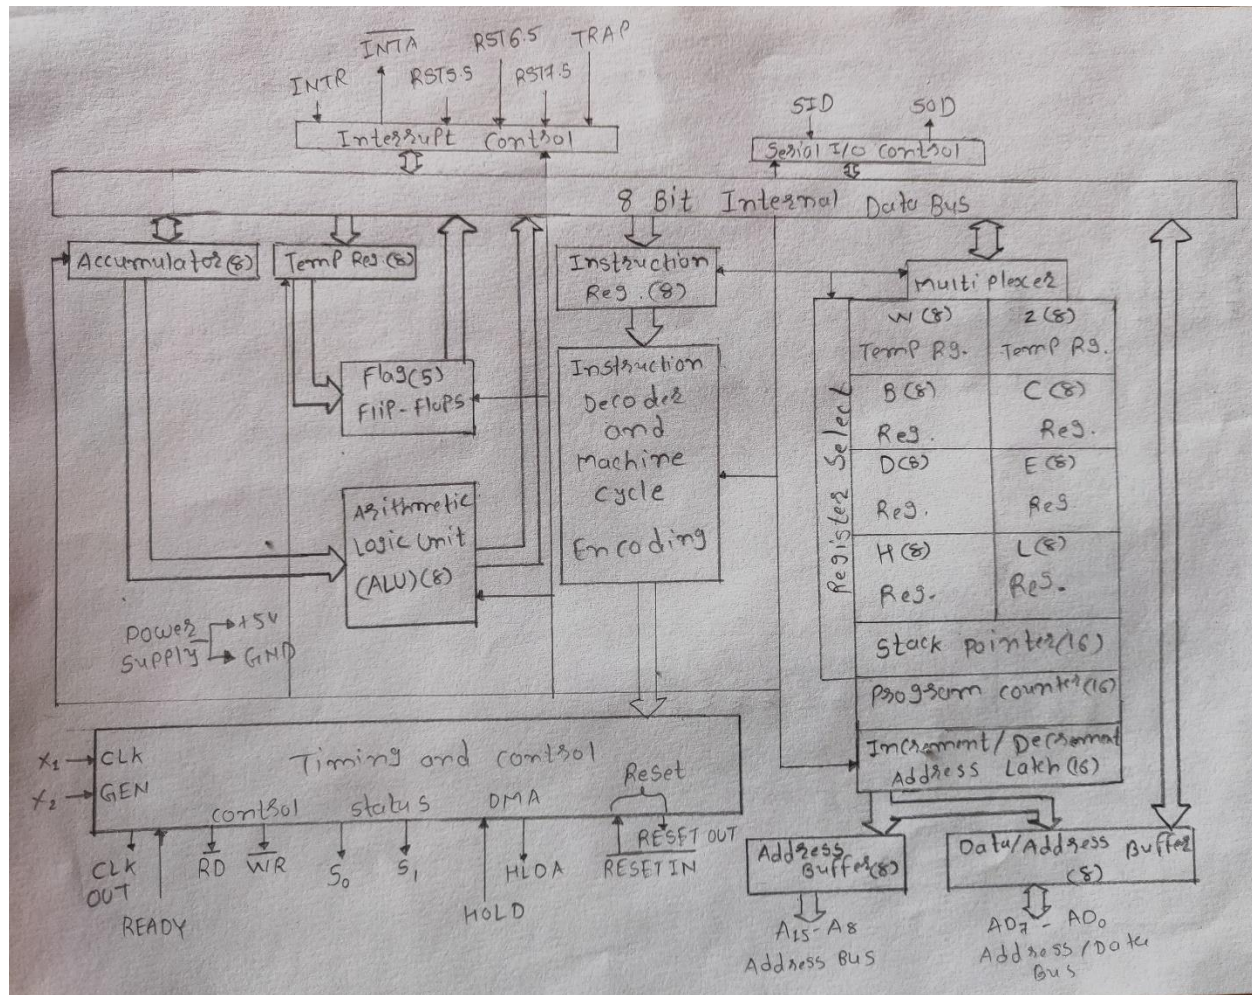 INTR
INTA
RST5.5
RST6.5
RST7.5
TRAP
Interrupt Control
SID
SOD
Serial I/O Control
8 Bit Internal Data Bus
Accumulator(8)
Temp Reg (8)
Flag(5)
Flip-Flops
Arithmetic
Logic Unit
(ALU)(8)
Instruction
Reg. (8)
Instruction
Decoder
and
Machine
Cycle
Encoding
Multiplexer
Register Select
W(8)
Temp Rg.
Z(8)
Temp Rg.
B(8)
Reg.
C(8)
Reg.
D(8)
Reg.
E(8)
Reg
H(8)
Reg.
L(8)
Reg.
Stack Pointer(16)
Program Counter(16)
Increment/Decrement
Address Latch(16)
Power
Supply
+5V
GND
X1
X2
CLK
GEN
Timing and control
control
status
DMA
Reset
CLK
OUT
READY
RD
WR
S0
S1
HOLD
HLDA
RESET IN
RESET OUT
Address
Buffer(8)
Data/Address Buffer
(8)
A15-A8
Address Bus
AD7 - AD0
Address/Data
Bus